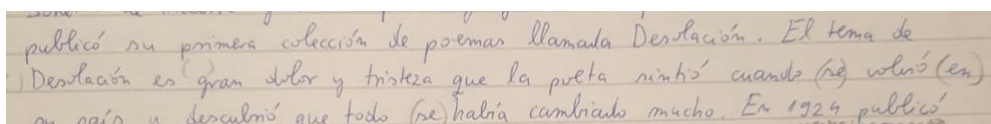 publicó su primera colección de poemas llamada Desolación. El tema de
Desolación es gran dolor y tristeza que la poeta sintió cuando (se) volvió (en)
su país y descubrió que todo (se) habría cambiado mucho. En 1924 publicó